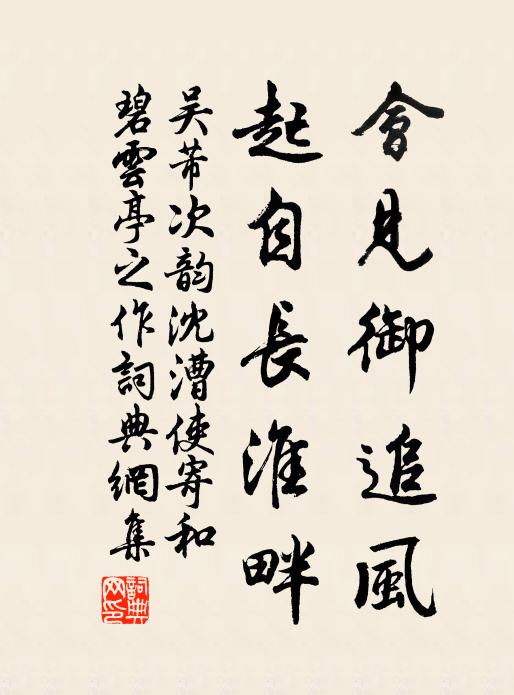 會見御追風
起自長淮畔
吴芾次韵沈漕使寄和
碧雲亭之作詞典網集
詞典网印